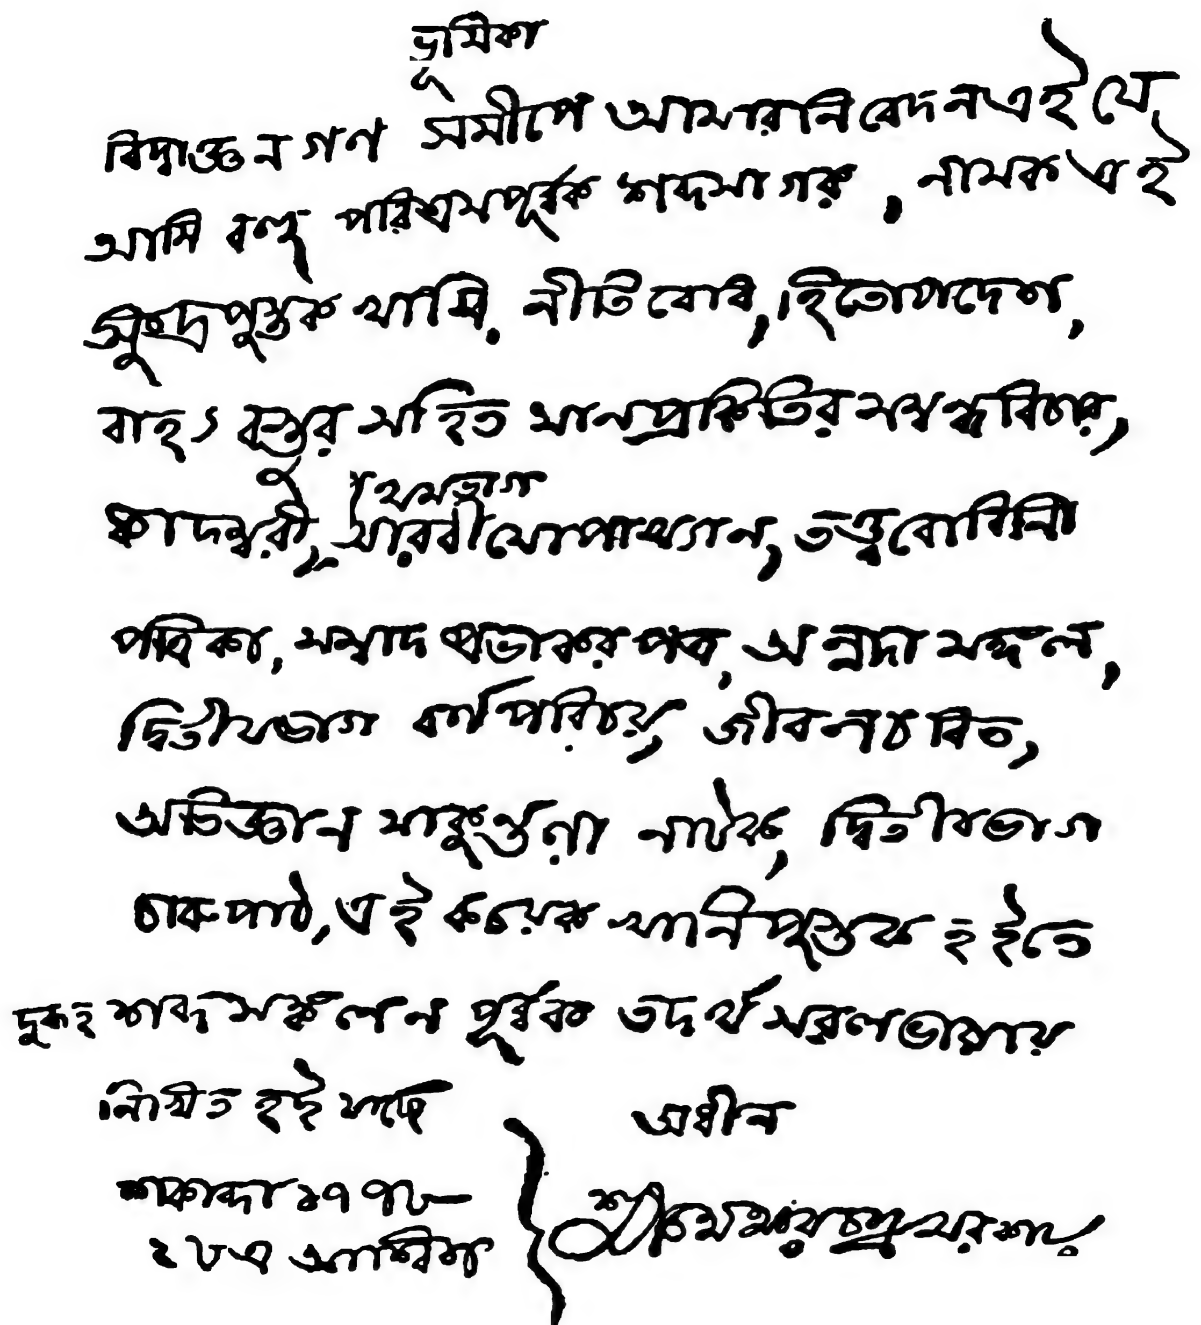 ভূমিকা
বিদ্বাজ্জনগণ সমীপে আমার নিবেদন এই যে,
আমি বহু পরিশ্রমপূর্ব্বক শব্দসাগর, নামক এই
ক্ষুদ্র পুস্তক খানি. নীতিবোধ, হিতোপদেশ,
বাহ্য বস্তুর সহিত মানপ্রকিতির সম্বন্ধ বিচার,
প্রথমভাগ
কাদম্বরী, আরবীয়োপাখ্যান, তত্ত্ববোধিনী
পত্রিকা, সম্বাদ প্রভাকর পত্র, অন্নদা মঙ্গল,
দ্বিতীয়ভাগ বর্ণপরিচয়, জীবনচরিত,
অভিজ্ঞান সাকুন্তলা নাটক, দ্বিতীয়ভাগ
চারুপাঠ, এই কয়েক খানি পুস্তক হইতে
দুরূহ শব্দ সঙ্কলন পূর্ব্বক তদর্থ সরলভাষায়
লিখিত হইয়াছে
অধীন
শকাব্দা ১৭৭৮
২৮এ আশ্বিন